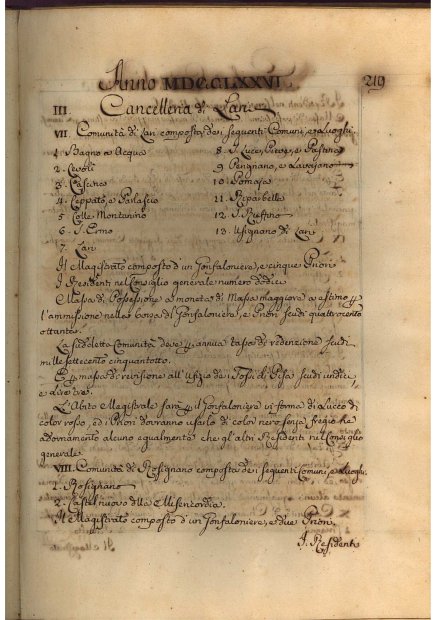 Anno MDCCLXXVI
219
III. Cancelleria di Lari
VII. Comunità di Lari composta dei seguenti Comuni, e Luoghi.
1. Bagno a Acqua
8. S. Luce, Pieve, e Pastina
2. Cevoli
9. Perignano, e Lavajano
3. Casciana
10. Pomaja
4. Ceppato, e Parlascio
11. Riparbella
5. Colle Montanino
12. S. Ruffino
6. S. Ermo
13. Usigliano di Lari
7. Lari
Il Magistrato composto d'un Gonfaloniere, e cinque Priori
I Residenti nel Consiglio generale numero dodici
Massa di Possessione a moneta di Massa maggiore o estimo p
l'ammissione nelle borse di Gonfaloniere, e Priori scudi quattrocento
ottanta.
La suddetta Comunità deve p annua tassa di redenzione scudi
mille settecento cinquantotto.
E p massa di revisione all'Ufizio dei Fossi di Pisa scudi undici,
e dire tre.
L'Abito Magistrale sarà p il Gonfaloniere in forma di Lucco di
color rosso, ed i Priori dovranno usarlo di color nero senza fregio, ne
adornamento alcuno egualmente che gl'altri Residenti nel Consiglio
generale.
VIII. Comunità di Rosignano composta dei seguenti Comuni, e Luoghi.
1. Rosignano
2. Castel nuovo della Misericordia.
Il Magistrato composto d'un Gonfaloniere, e due Priori
I. Residenti